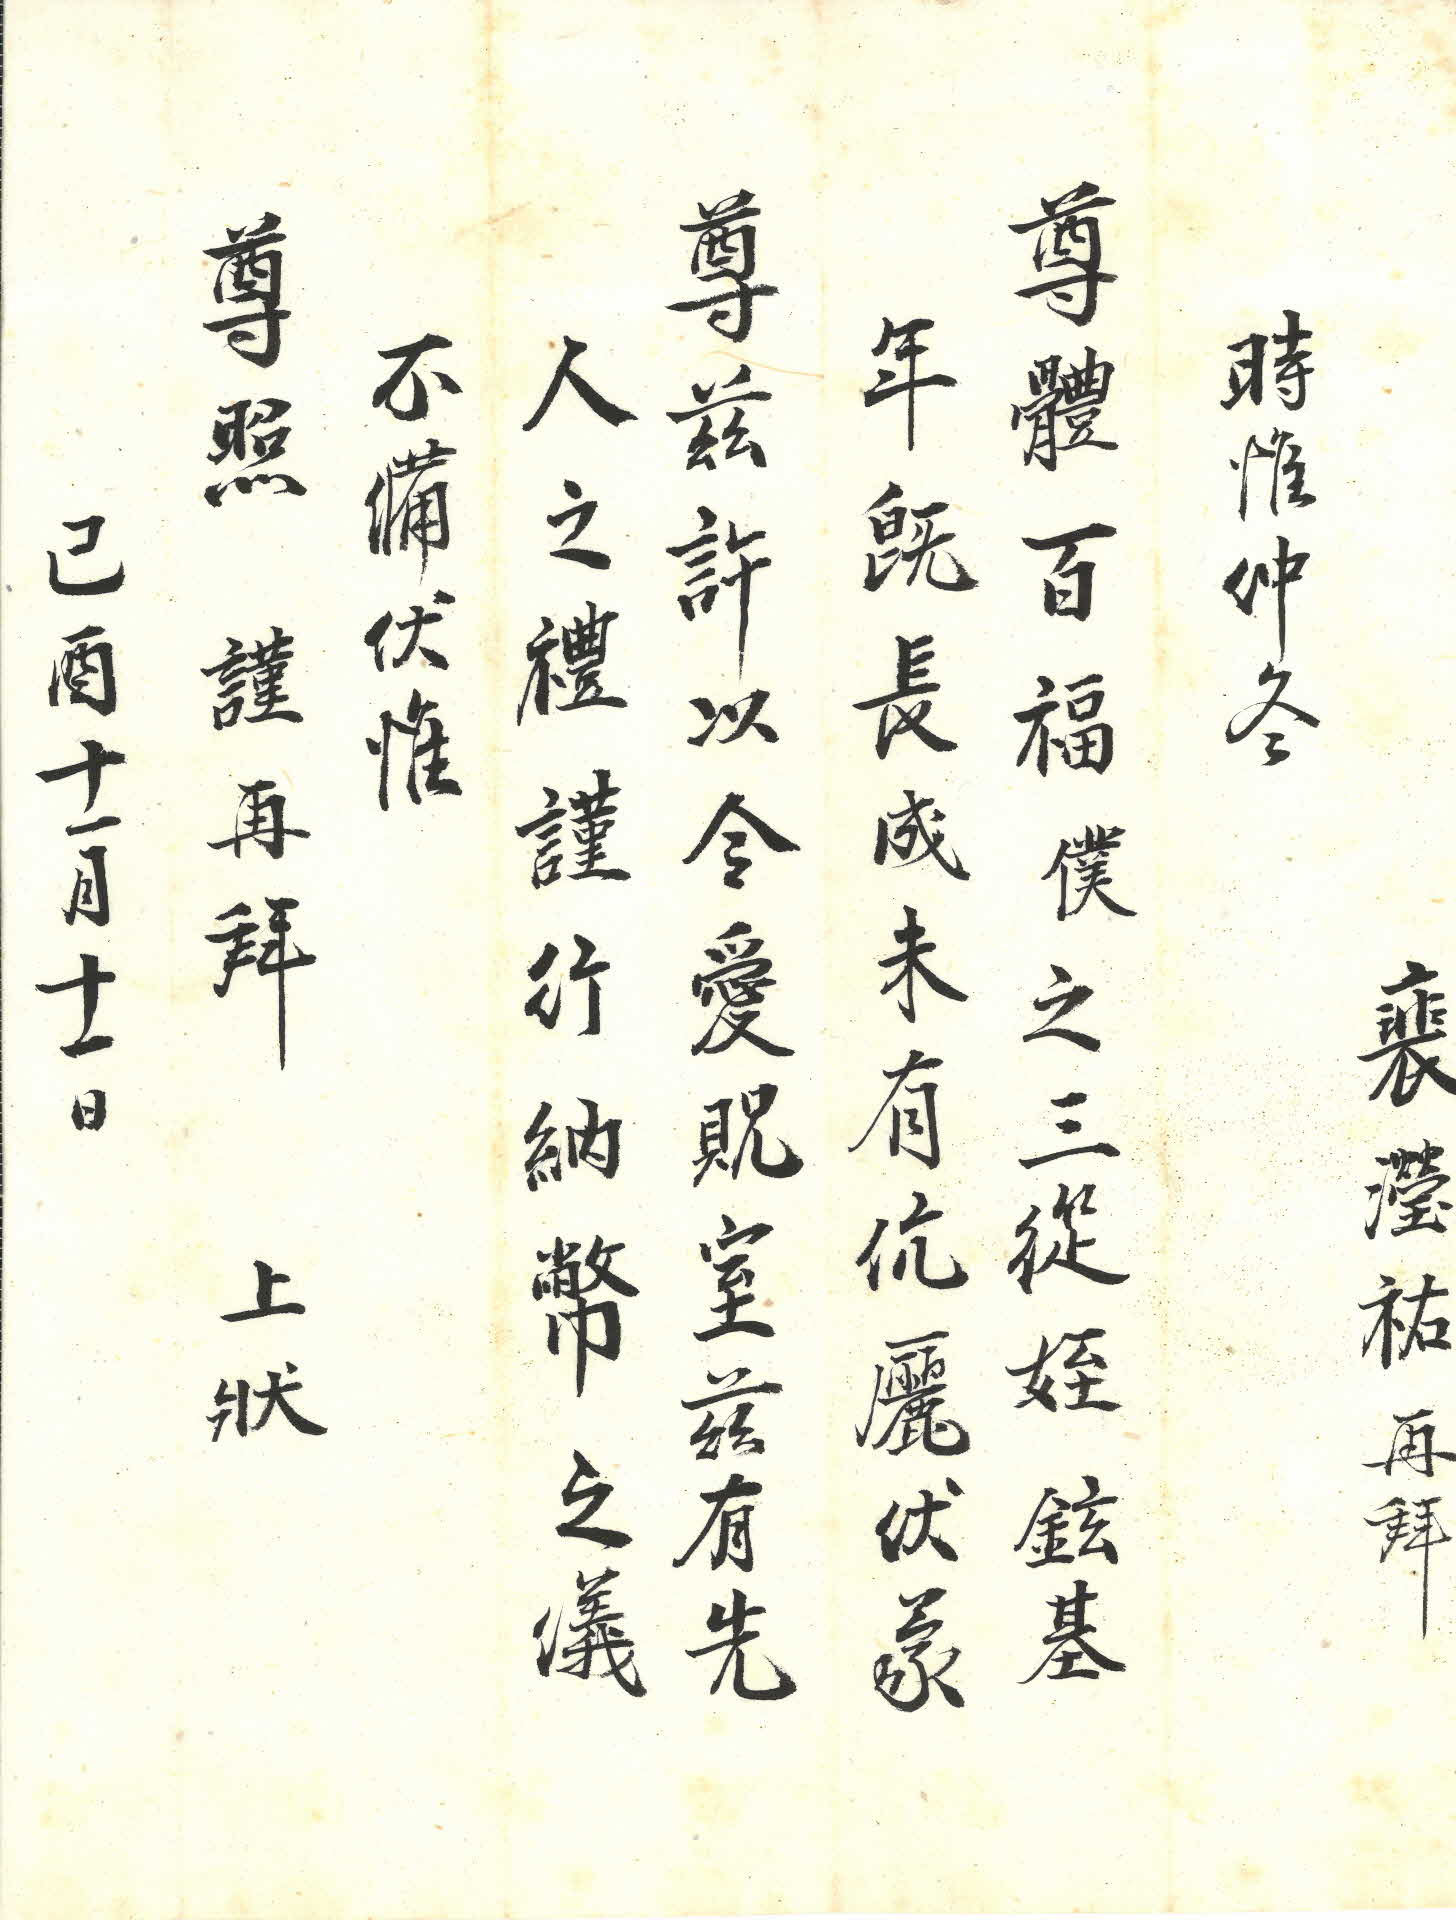 裵瀅祐再拜
時惟仲冬
尊體百福僕之三從姪鉉基
年旣長成未有伉儷伏蒙
尊玆許以令愛貺室玆有先
人之禮謹行納幣之儀
不備伏惟
尊照 謹再拜 上狀
己酉十一月十一日